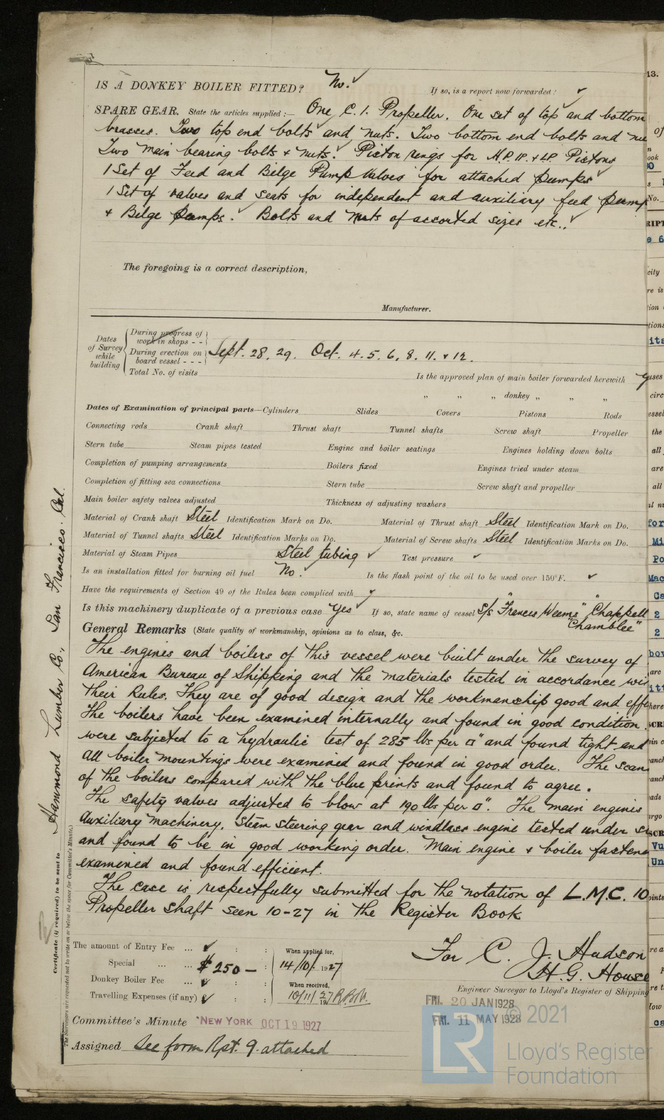 IS A DONKEY BOILER FITTED? No. ✓ If so, is a report now forwarded: ✓
SPARE GEAR. State the articles supplied:— One C.I. Propeller. One set of top and bottom
brasses. Two top end bolts and nuts. Two bottom end bolts and nu
Two main bearing bolts & nuts. Piston rings for H.P. I.P. & L.P. Pistons
1 Set of Feed and Bilge Pump Valves for attached pumps
1 Set of valves and seats for independent and auxiliary feed pump
& Bilge pumps. Bolts and nuts of assorted sizes etc.
The foregoing is a correct description,
Manufacturer.
Dates of Survey while building
During progress of work in shops - -
During erection on board vessel - - - Sept. 28, 29. Oct. 4. 5. 6. 8. 11. & 12.
Total No. of visits
Is the approved plan of main boiler forwarded herewith
" " donkey " " "
Dates of Examination of principal parts—Cylinders Slides Covers Pistons Rods
Connecting rods Crank shaft Thrust shaft Tunnel shafts Screw shaft Propeller
Stern tube Steam pipes tested Engine and boiler seatings Engines holding down bolts
Completion of pumping arrangements Boilers fixed Engines tried under steam
Completion of fitting sea connections Stern tube Screw shaft and propeller
Main boiler safety valves adjusted Thickness of adjusting washers
Material of Crank shaft Steel Identification Mark on Do. Material of Thrust shaft Steel Identification Mark on Do.
Material of Tunnel shafts Steel Identification Marks on Do. Material of Screw shafts Steel Identification Marks on Do.
Material of Steam Pipes Steel tubing ✓ Test pressure ✓
Is an installation fitted for burning oil fuel No. Is the flash point of the oil to be used over 150°F. ✓
Have the requirements of Section 49 of the Rules been complied with ✓
Is this machinery duplicate of a previous case Yes ✓ If so, state name of vessel S/s "Francis Weems" "Chappell
Chamblee"
General Remarks (State quality of workmanship, opinions as to class, &c.
The engines and boilers of this vessel were built under the survey of
American Bureau of Shipping and the materials tested in accordance wi
their Rules. They are of good design and the workmanship good and effi
The boilers have been examined internally and found in good condition.
were subjected to a hydraulic test of 285 lbs per □" and found tight and
All boiler mountings were examined and found in good order. The scan
of the boilers compared with the blue prints and found to agree.
The safety valves adjusted to blow at 190 lbs per □". The main engines
Auxiliary machinery, steam steering gear and windlass engine tested under s
and found to be in good working order. Main engine & boiler fasten
examined and found efficient.
The case is respectfully submitted for the notation of L.M.C. 10
Propeller shaft seen 10-27 in the Register Book
The amount of Entry Fee ... ✓
Special ... $250—
Donkey Boiler Fee ... ✓
Travelling Expenses (if any) ✓
When applied for, 14/10/1927
When received, 10/11/27
For C. J. Hudson
H. G. House
Engineer Surveyor to Lloyd's Register of Shipping
FRI. 20 JAN 1928
FRI. 11 MAY 1928
Committee's Minute NEW YORK OCT 19 1927
Assigned See form Rpt. 9. attached
Certificate (if required) to be sent to Hammond Lumber Co., San Francisco. Cal.
(The Surveyors are requested not to write on or below the space for Committee's Minute.)
© 2021
LR
Lloyd's Register
Foundation